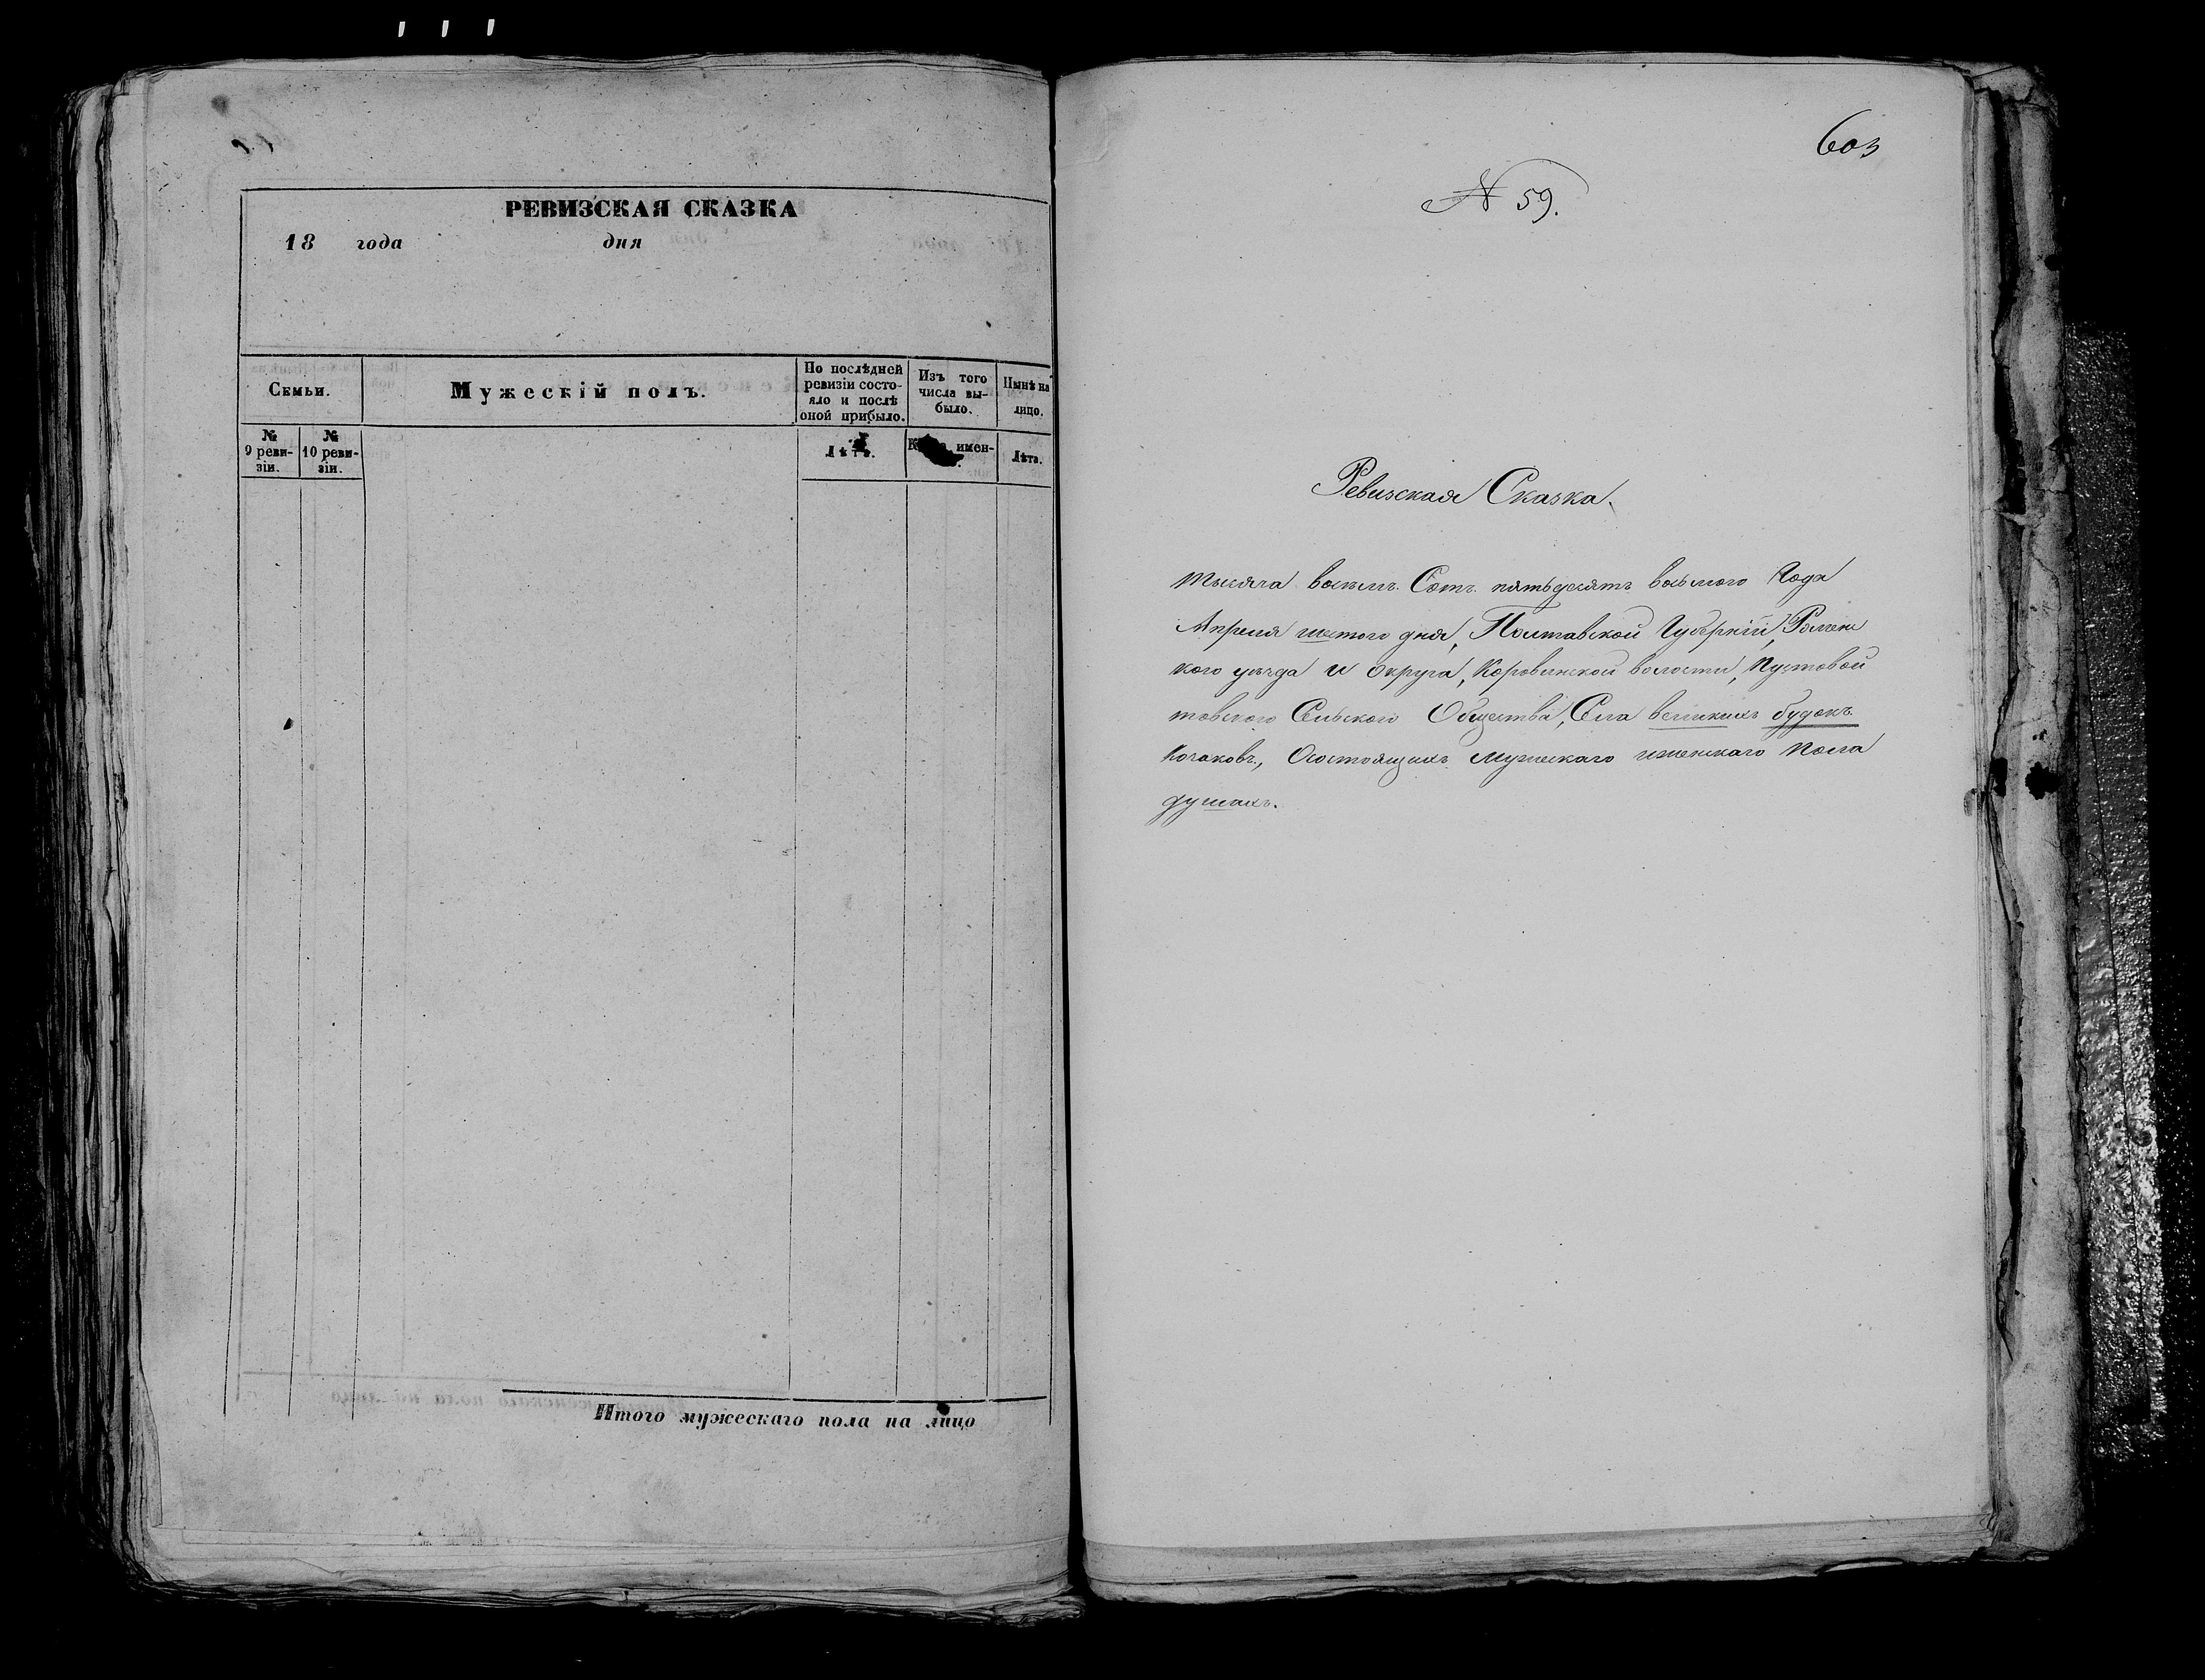 РЕВИЗСКАЯ СКАЗКА
18 года дня
Семьи.
Мужескій полъ.
По послѣдней
ревизіи состо-
яло и послѣ
оной прибыло.
Изъ того
числа вы-
было.
Нынѣ на
лицо.
№
9 реви-
зіи.
№
10 реви-
зіи.
Лѣта.
имен-
Лѣта.
Итого мужескаго пола на лицо
603
N 59.
Ревизская Сказка.
тысяча восемь Сотъ пятьдесятъ восьмого Года
Апреля шестого дня, Полтавской Губерніи, Роменс
кого уѣзда и Округа, Коровинской волости, Пустовой
товского Сельского Общества, Села великихъ будокъ
Козаковъ, Осостоящихъ мужескаго иженскаго Пола
душахъ.